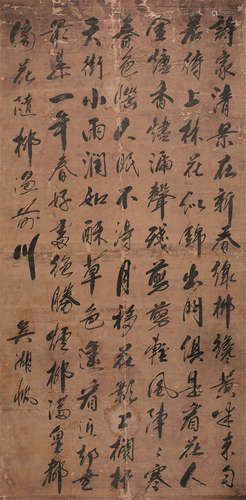 詩家清景在新春綠柳纔黃半未勻
若待上林花似錦出門俱是看花人
金爐香燼漏聲殘剪剪輕風陣陣寒
春色惱人眠不得月移花影上欄杆
天街小雨潤如酥草色遙看近却無
最是一年春好處絕勝煙柳滿皇都
傍花隨柳過前川
吳湖帆